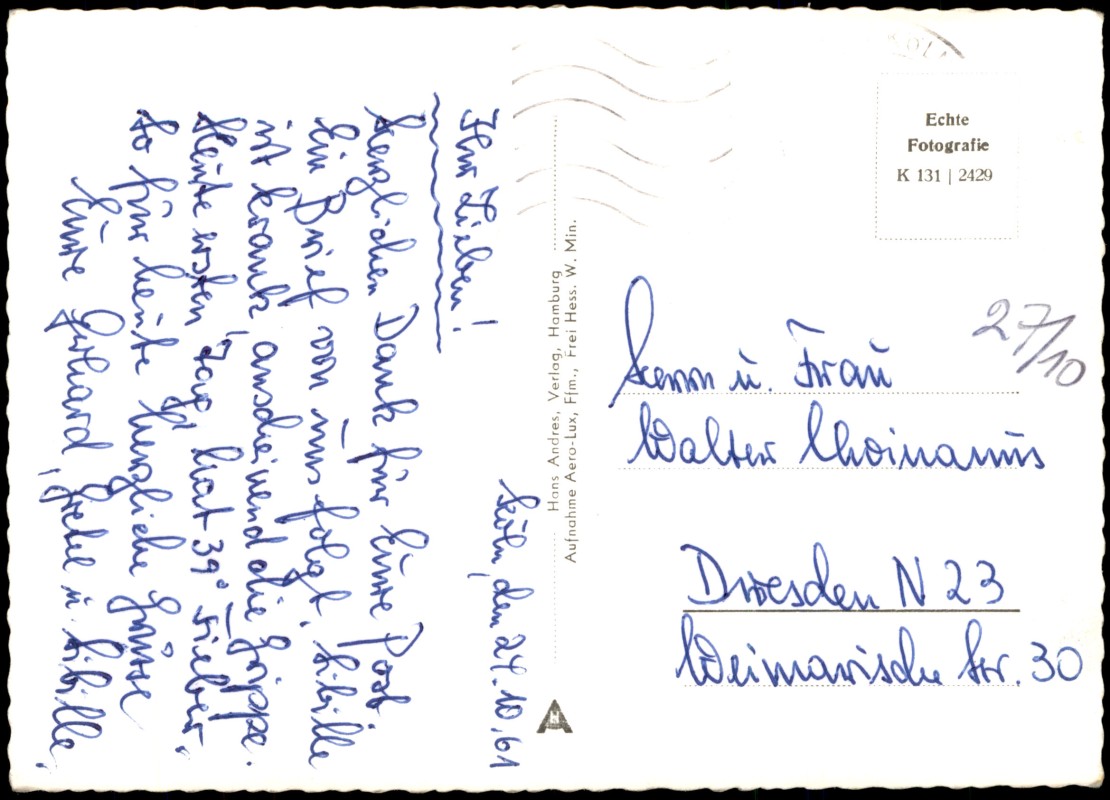 Köln, den 24.10.61
Ihr Lieben!
Herzlichen Dank für Eure Post.
Ein Brief von uns folgt. Sibille
ist krank, anscheinend die Grippe.
Heute ersten Tag, hat 39° Fieber.
So für heute herzliche Grüsse
Eure Gerhard, Gretel u. Sibille.
Hans Andres, Verlag, Hamburg
Aufnahme Aero-Lux, Ffm., Frei Hess. W. Min.
Echte
Fotografie
K 131 | 2429
27/10
Herrn u. Frau
Walter Choinanus
Dresden N 23
Weimarische Str. 30